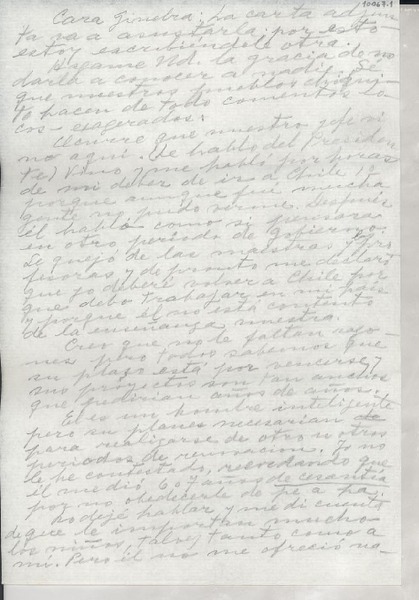 10067.1
Cara Ginebra: La carta adjun-
ta va a asustarla, por esto
estoy escribiéndole otra.
Hágame Ud. la gracia de no
darla a conocer a nadie. Sé
que nuestros pueblos chiqui-
to hacen de todo comentos lo-
cos - exagerados.
Ocurre que nuestro jefe vi-
no aquí. (Le hablo del Presiden-
te) Vino y me habló por horas
de mi deber de ir a Chile
porque aunque fui mucha
gente no pudo verme. Después
él habló como si pensara
en otro período de gobierno.
Se quejó de las maestras y pro
fesoras y de pronto me declaró
que yo deberé volver a Chile por
que debo trabajar en mi país
y porque él no está contento
de la enseñanza nuestra.
Creo que no le faltan razo-
nes, pero todos sabemos que
su plazo está por vencerse, y
sus proyectos son tan anchos
que pedirían años de años.
El es un hombre inteligente
pero su planes necesarían
para realizarse de otro u otros
períodos de renovación. Yo no
le he contestado, recordando que
él me dió 6 o 7 años de cesantía
por no obedecerle de pe a pa.
Lo dejé hablar y me di cuenta
de que le importan mucho
los niños, talvez tanto como a
mí. Pero él no me ofreció na-